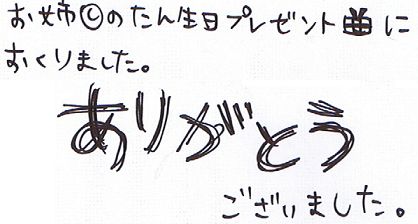 お姉Ⓒのたん生日プレゼントに
おくりました。
ありがとう
ございました。